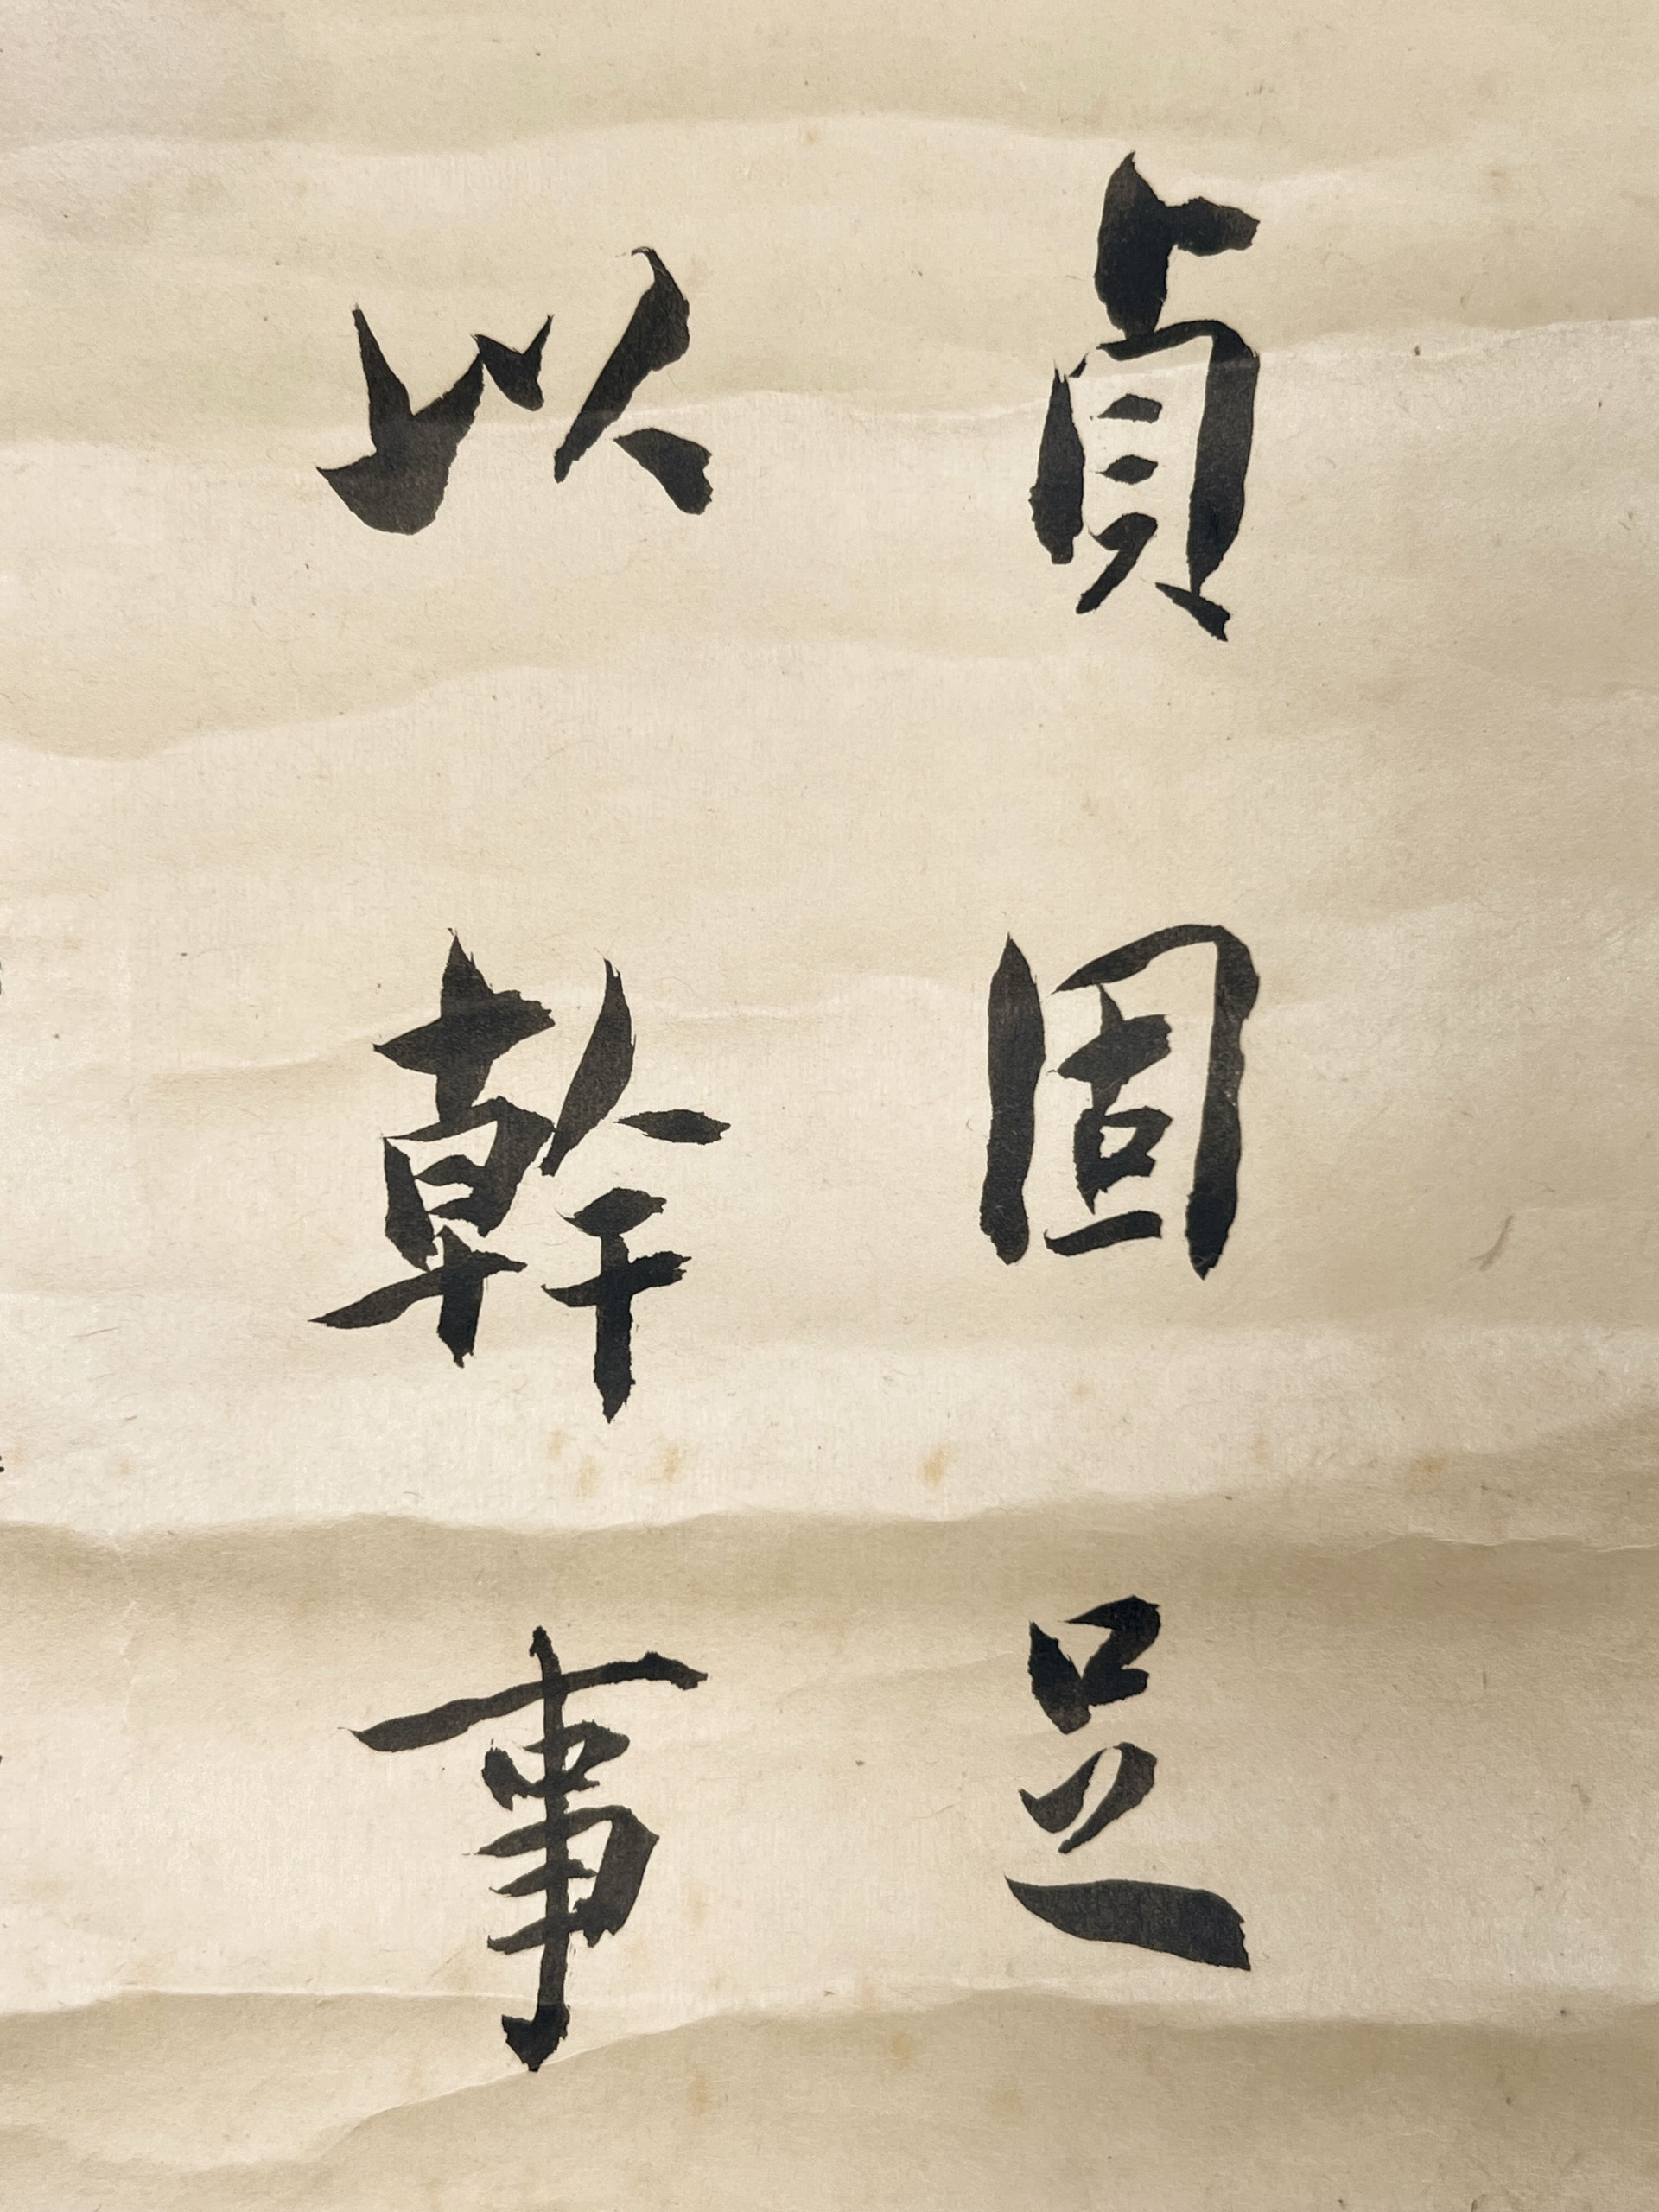 貞固足
以幹事